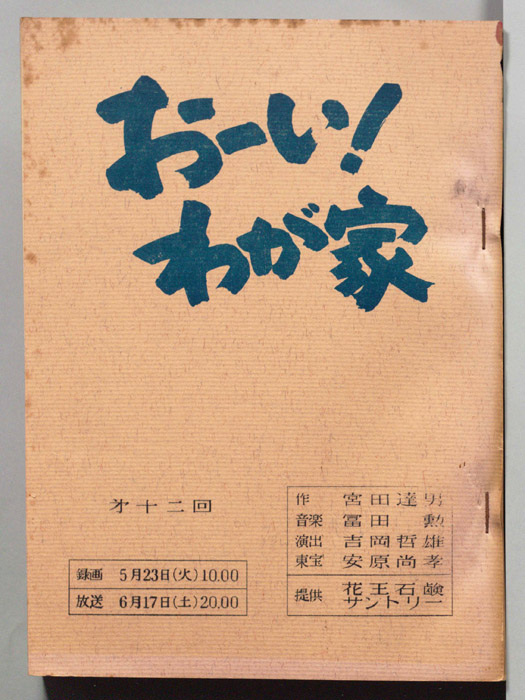 おーい!
わが家
才十二回
録画 5月23日(火)10.00
放送 6月17日(土)20.00
作 宮田達男
音楽 冨田 勲
演出 吉岡哲雄
東宝 安原尚孝
提供 花王石鹸
サントリー